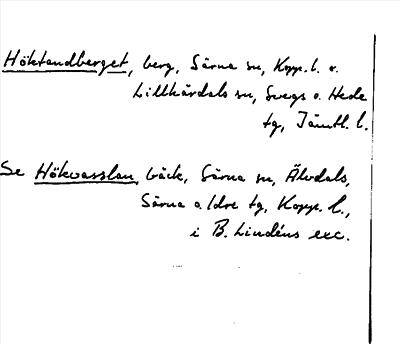 Höktandberget, berg, Särna sn, Kopp. l. o.
Lillhärdals sn, Svegs o. Hede
tg, Jämtl. l.
Se Hökvasslan, bäck, Särna sn, Älvdals,
Särna o. Idre tg, Kopp. l.,
i B. Lindéns exc.